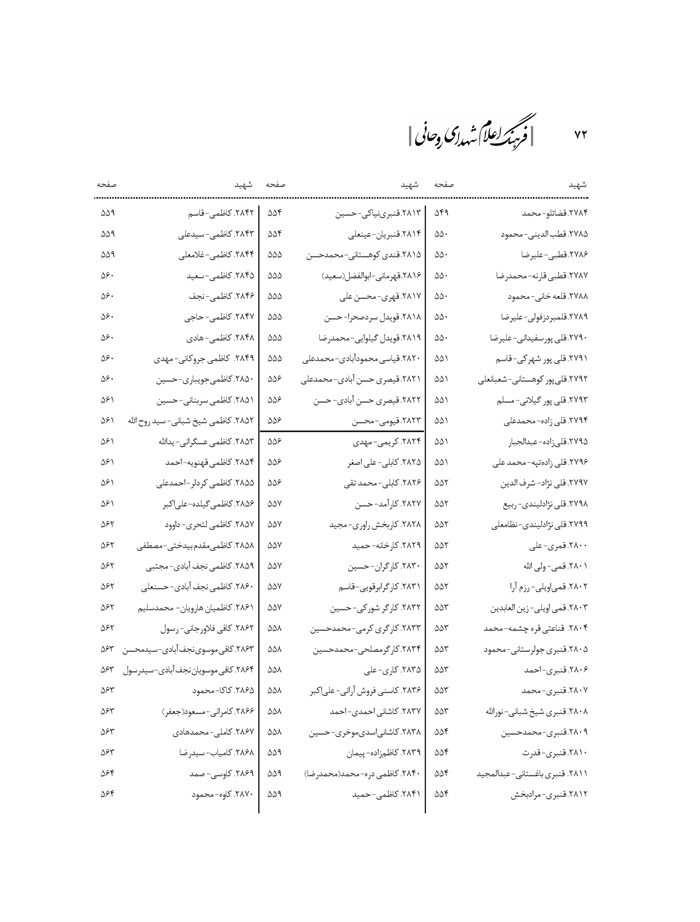 ۷۲
فرهنگ اعلام شهدای روحانی
شهید صفحه
۲۷۸۴.قضاتلو-محمد ۵۴۹
۲۷۸۵.قطب الدینی-محمود ۵۵۰
۲۷۸۶.قطبی-علیرضا ۵۵۰
۲۷۸۷.قطبی قارنه-محمدرضا ۵۵۰
۲۷۸۸.قلعه خانی-محمود ۵۵۰
۲۷۸۹.قلمبردزفولی-علیرضا ۵۵۰
۲۷۹۰.قلی پورسفیدانی-علیرضا ۵۵۰
۲۷۹۱.قلی پور شهرکی-قاسم ۵۵۱
۲۷۹۲.قلی‌پور کوهستانی-شعبانعلی ۵۵۱
۲۷۹۳.قلی پور گیلانی-مسلم ۵۵۱
۲۷۹۴.قلی زاده-محمدعلی ۵۵۱
۲۷۹۵.قلی‌زاده-عبدالجبار ۵۵۱
۲۷۹۶.قلی زاده‌تپه-محمد علی ۵۵۱
۲۷۹۷.قلی نژاد-شرف الدین ۵۵۲
۲۷۹۸.قلی نژادلیندی-ربیع ۵۵۲
۲۷۹۹.قلی نژادلیندی-نظامعلی ۵۵۲
۲۸۰۰.قمری-علی ۵۵۲
۲۸۰۱.قمی-ولی الله ۵۵۲
۲۸۰۲.قمی‌اویلی-رزم آرا ۵۵۲
۲۸۰۳.قمی اویلی-زین العابدین ۵۵۳
۲۸۰۴. قناعتی قره چشمه-محمد ۵۵۳
۲۸۰۵.قنبری جولرستانی-محمود ۵۵۳
۲۸۰۶.قنبری-احمد ۵۵۳
۲۸۰۷.قنبری-محمد ۵۵۳
۲۸۰۸.قنبری شیخ شبانی-نورالله ۵۵۳
۲۸۰۹.قنبری-محمدحسین ۵۵۴
۲۸۱۰.قنبری-قدرت ۵۵۴
۲۸۱۱.قنبری باغستانی-عبدالمجید ۵۵۴
۲۸۱۲.قنبری-مرادبخش ۵۵۴
شهید صفحه
۲۸۱۳.قنبری‌نیاکی-حسین ۵۵۴
۲۸۱۴.قنبریان-عینعلی ۵۵۴
۲۸۱۵.قندی کوهستانی-محمدحسن ۵۵۵
۲۸۱۶.قهرمانی-ابوالفضل(سعید) ۵۵۵
۲۸۱۷.قهری-محسن علی ۵۵۵
۲۸۱۸.قویدل سردصحرا-حسن ۵۵۵
۲۸۱۹.قویدل گیلوایی-محمدرضا ۵۵۵
۲۸۲۰.قیاسی محمودآبادی-محمدعلی ۵۵۵
۲۸۲۱.قیصری حسن آبادی-محمدعلی ۵۵۶
۲۸۲۲.قیصری حسن آبادی-حسن ۵۵۶
۲۸۲۳.قیومی-محسن ۵۵۶
۲۸۲۴.کریمی-مهدی ۵۵۶
۲۸۲۵.کابلی-علی اصغر ۵۵۶
۲۸۲۶.کابلی-محمد تقی ۵۵۶
۲۸۲۷.کارآمد-حسن ۵۵۷
۲۸۲۸.کاربخش راوری-مجید ۵۵۷
۲۸۲۹.کارخانه-حمید ۵۵۷
۲۸۳۰.کارگران-حسین ۵۵۷
۲۸۳۱.کارگرابرقویی-قاسم ۵۵۷
۲۸۳۲.کارگر شورکی-حسین ۵۵۷
۲۸۳۳.کارگری کرمی-محمدحسین ۵۵۸
۲۸۳۴.کارگرمصلحی-محمدحسین ۵۵۸
۲۸۳۵.کاری-علی ۵۵۸
۲۸۳۶.کاسنی فروش آرانی-علی‌اکبر ۵۵۸
۲۸۳۷.کاشانی احمدی-احمد ۵۵۸
۲۸۳۸.کاشانی‌اسدی‌موخری-حسین ۵۵۸
۲۸۳۹.کاظم‌زاده-پیمان ۵۵۹
۲۸۴۰.کاظمی دره-محمد(محمدرضا) ۵۵۹
۲۸۴۱.کاظمی-حمید ۵۵۹
شهید صفحه
۲۸۴۲.کاظمی-قاسم ۵۵۹
۲۸۴۳.کاظمی-سیدعلی ۵۵۹
۲۸۴۴.کاظمی-غلامعلی ۵۵۹
۲۸۴۵.کاظمی-سعید ۵۶۰
۲۸۴۶.کاظمی-نجف ۵۶۰
۲۸۴۷.کاظمی-حاجی ۵۶۰
۲۸۴۸.کاظمی-هادی ۵۶۰
۲۸۴۹. کاظمی جروکانی-مهدی ۵۶۰
۲۸۵۰.کاظمی‌جویباری-حسین ۵۶۰
۲۸۵۱.کاظمی سربنانی-حسین ۵۶۱
۲۸۵۲.کاظمی شیخ شبانی-سید روح الله ۵۶۱
۲۸۵۳.کاظمی عسگرانی-یدالله ۵۶۱
۲۸۵۴.کاظمی قهنویه-احمد ۵۶۱
۲۸۵۵.کاظمی کردلر-احمدعلی ۵۶۱
۲۸۵۶.کاظمی‌گیلده-علی‌اکبر ۵۶۱
۲۸۵۷.کاظمی لتحری-داوود ۵۶۲
۲۸۵۸.کاظمی‌مقدم‌بیدختی-مصطفی ۵۶۲
۲۸۵۹.کاظمی نجف آبادی-مجتبی ۵۶۲
۲۸۶۰.کاظمی نجف آبادی-حسنعلی ۵۶۲
۲۸۶۱.کاظمیان هارویان-محمدسلیم ۵۶۲
۲۸۶۲.کافی فلاورجانی-رسول ۵۶۲
۲۸۶۳.کافی‌موسوی‌نجف‌آبادی-سیدمحسن ۵۶۳
۲۸۶۴.کافی‌موسویان‌نجف‌آبادی-سیدرسول ۵۶۳
۲۸۶۵.کاکا-محمود ۵۶۳
۲۸۶۶.کامرانی-مسعود(جعفر) ۵۶۳
۲۸۶۷.کاملی-محمدهادی ۵۶۳
۲۸۶۸.کامیاب-سیدرضا ۵۶۳
۲۸۶۹.کاوسی-صمد ۵۶۴
۲۸۷۰.کاوه-محمود ۵۶۴